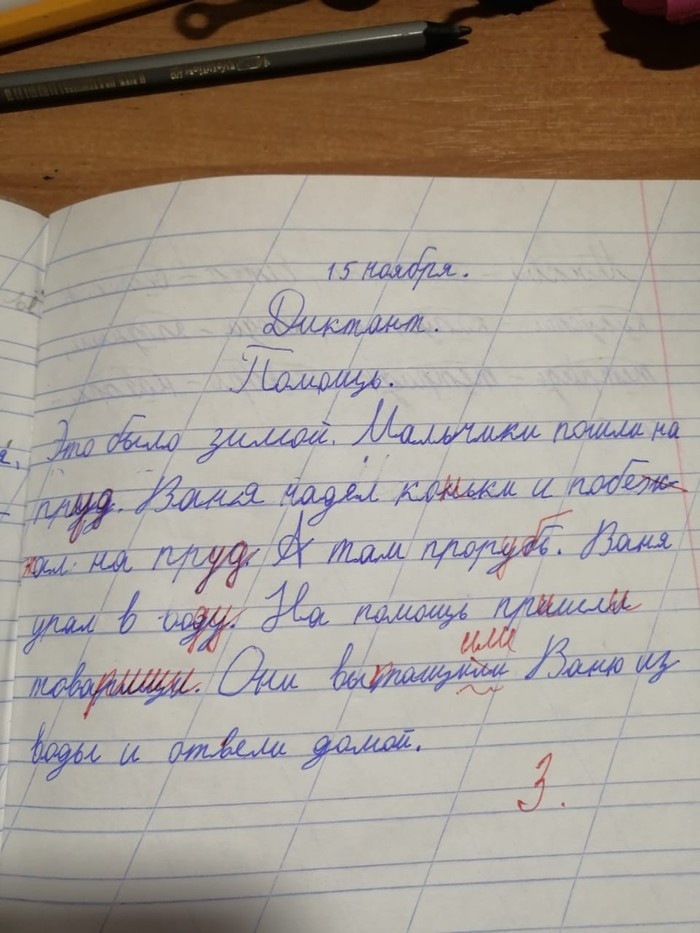 15 ноября.
Диктант.
Помощь.
Это было зимой. Мальчики пошли на
пруд. Ваня надел коньки и побеж
жал на пруд. А там прорубь. Ваня
упал в воду. На помощь пришли
или
товарищи. Они вытащили Ваню из
воды и отвели домой.
3.